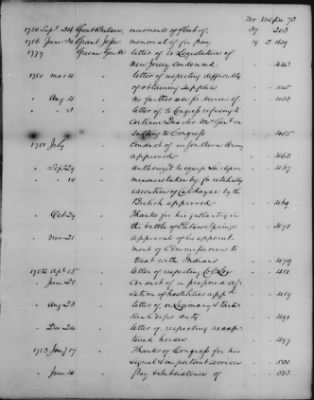 No Vol Pa 78
1780 Sept 24 Great Britain, movements of fleet of. 37 203
1786 June 30 Grant John, memorial of for pay 19 2 1639
1779 Greene Gen N letter of to Legislature of
New Jersey Condemned - 443
1780 Mar 4 letter of respecting difficulty
of obtaining supplies
" Aug 4 no further use for services of - 403
" " 3 letter of to Congress refusing to
sulting to Congress 405
1781 July conduct of in Southern Army
approved - 463
" Sept 29 Authorized to
" " 10 measures taken by to retaliate
execution of Col Hayne by the
British approved - 469
" Oct 29 Thanks for his gallantry in
the battle of Eutaw Springs 471
" Nov 21 Approval of his appoint-
ment of Commissioners to
treat with Indians 479
1782 Apl 15 letter of respecting Col Loy
" June 20 Conduct of in proposed ces-
sation of hostilities appd - 489
" Aug 23 letter of, on
duty - 491
" Dec 24 letter of respecting recap-
tured horses - 497
1783 Jany 17 Thanks of Congress for his
signal & important services - 501
" June 16 Pay & subsistence of - 503